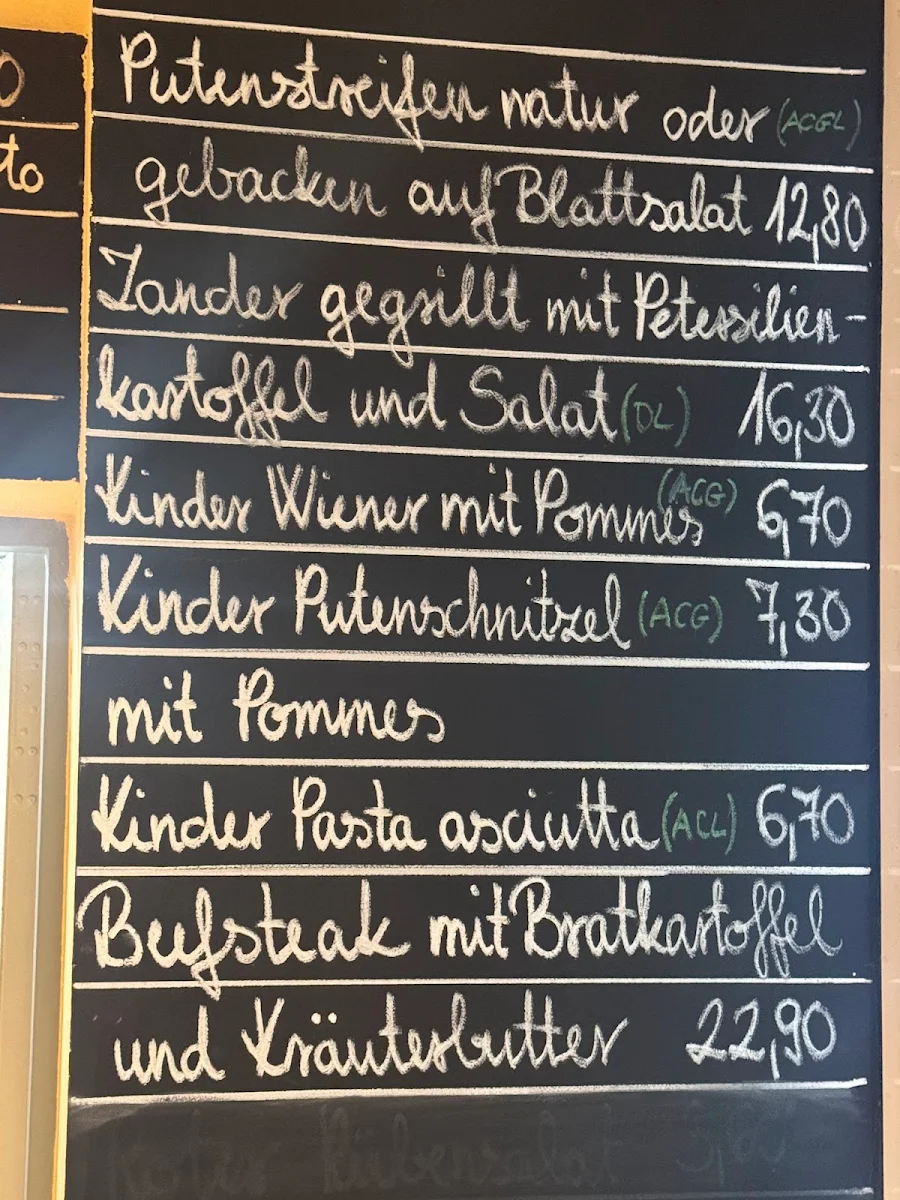 0
to
Putenstreifen natur oder (ACGL)
gebacken auf Blattsalat 12,80
Zander gegrillt mit Petersilien-
kartoffel und Salat (DL) 16,30
Kinder Wiener mit Pommes (ACG) 6,70
Kinder Putenschnitzel (ACG) 7,30
mit Pommes
Kinder Pasta asciutta (ACL) 6,70
Beefsteak mit Bratkartoffel
und Kräuterbutter 22,90
Roter Rübensalat